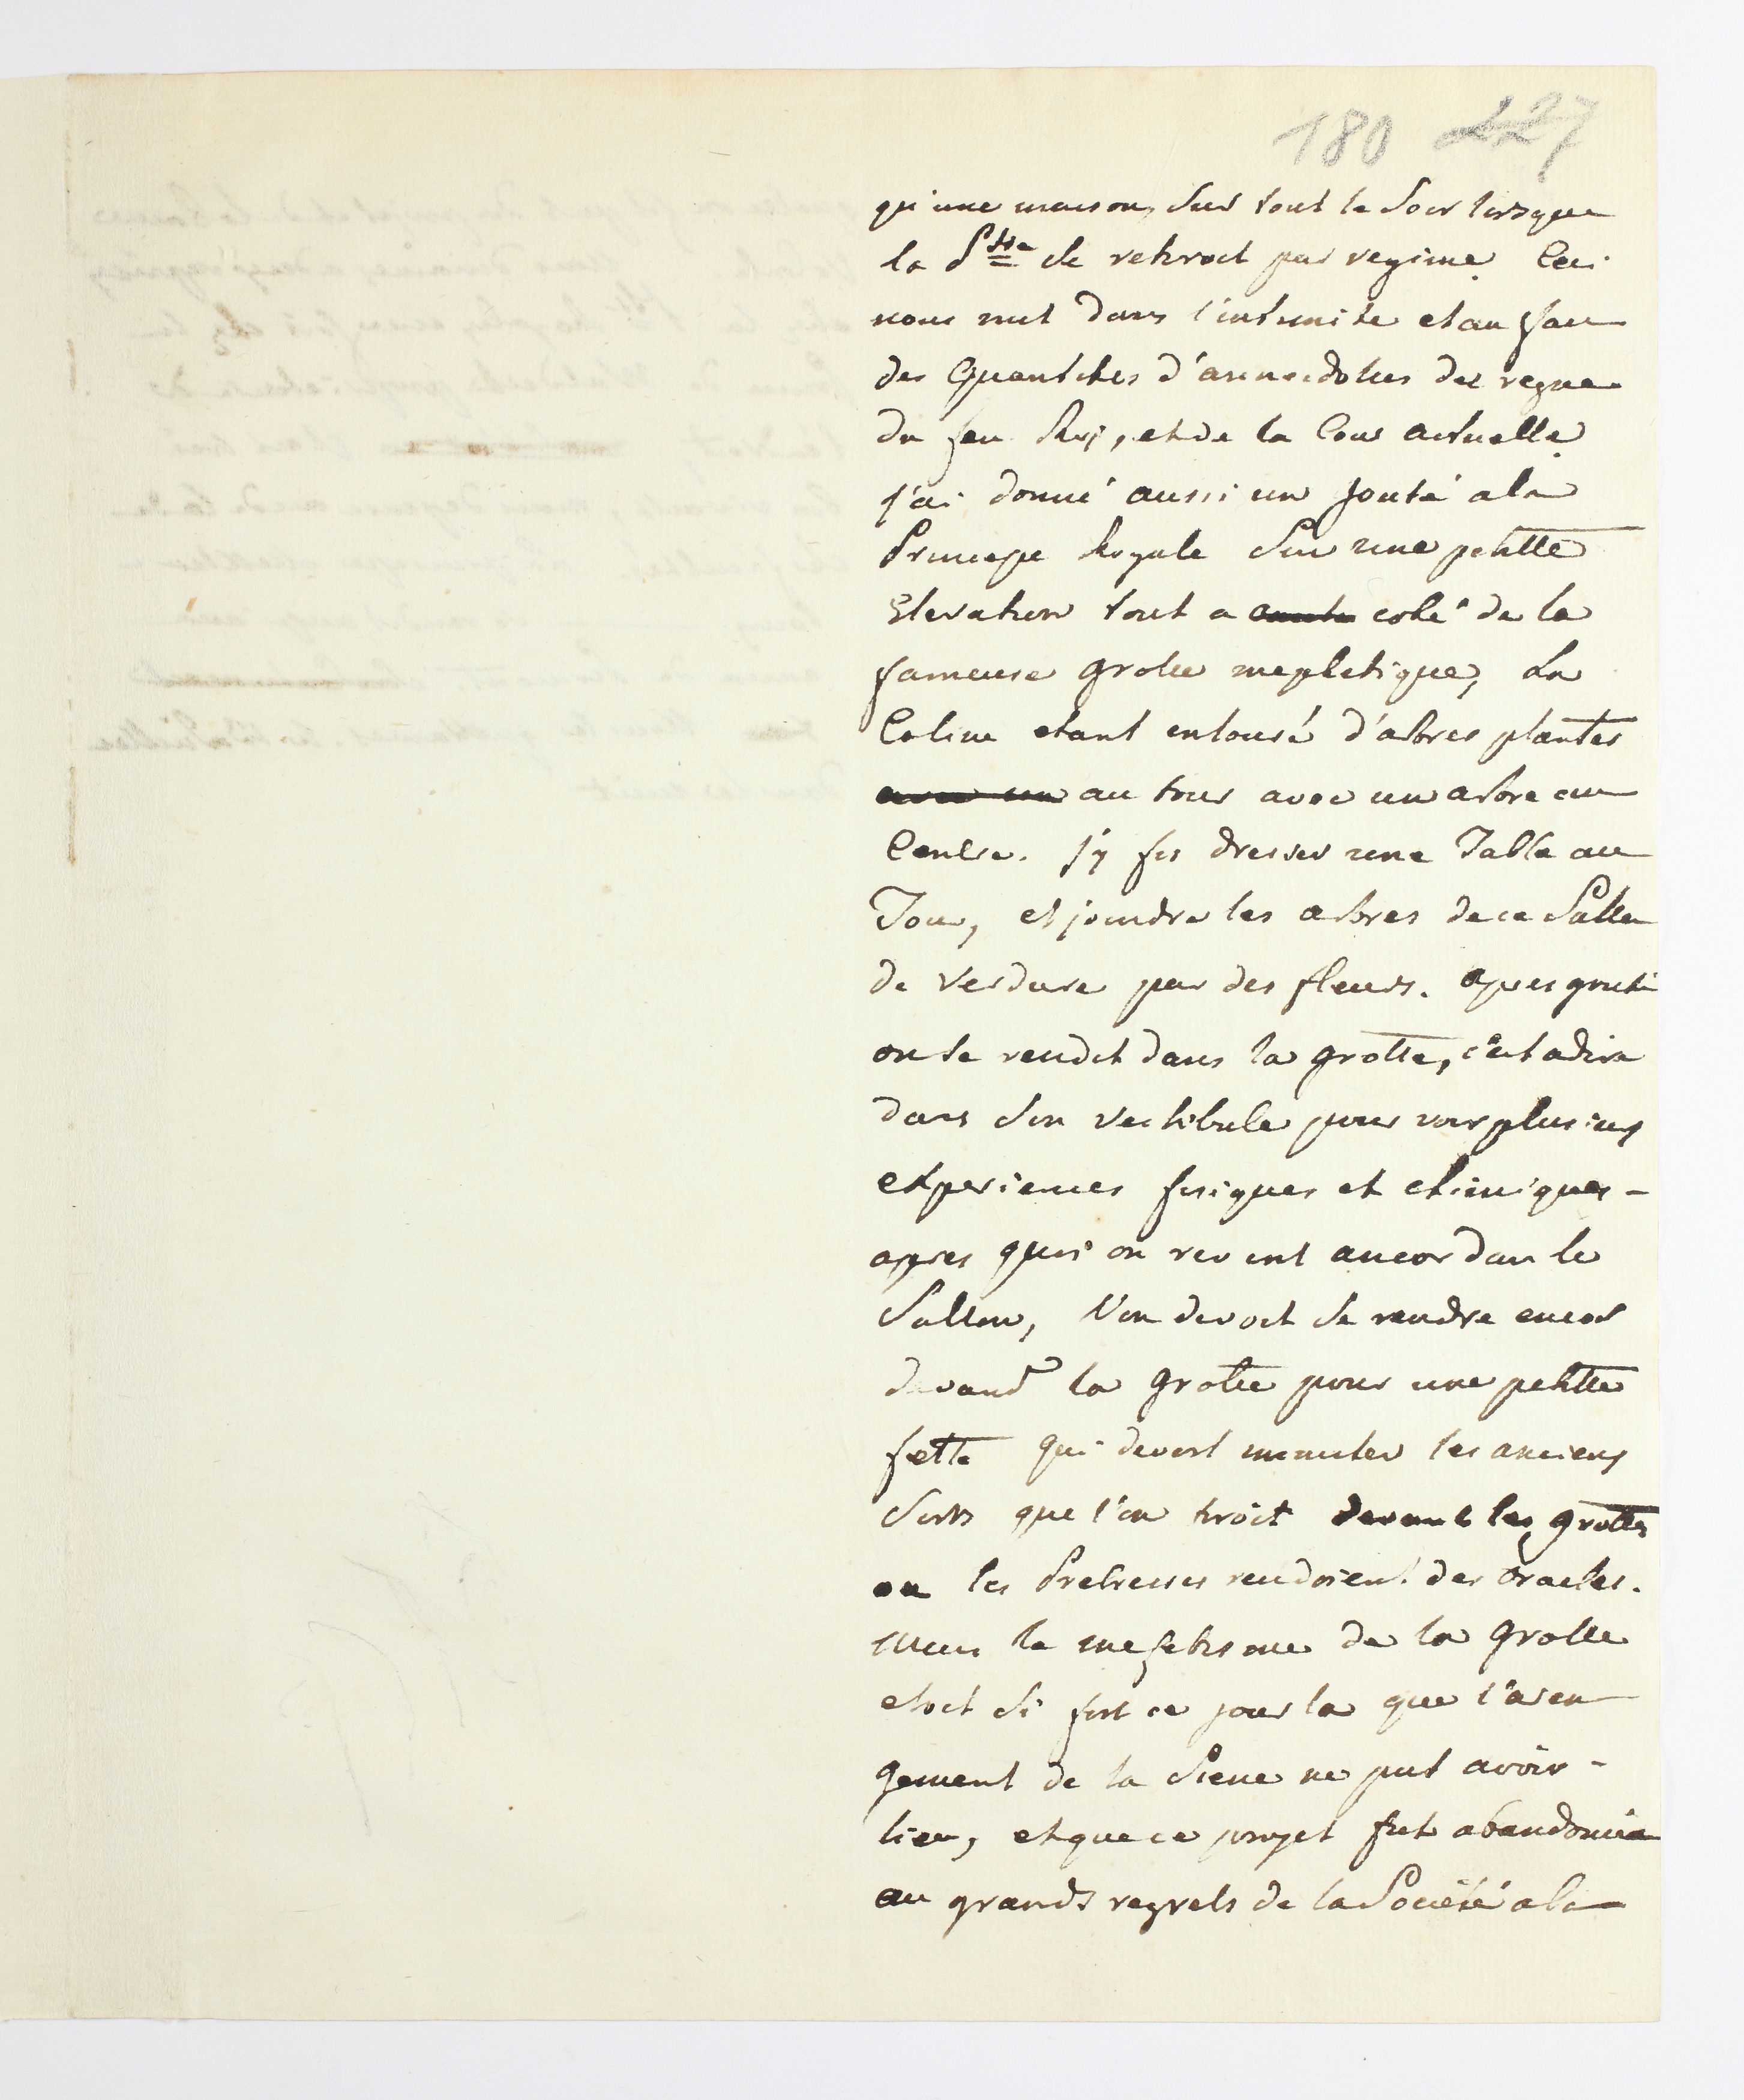 180 227
qu'une maison, sur tout le soir lorsque
la P.sse se retiroit par regime. Ceci
nous mit dans l'intimité et au fait
des quantités d'annecdottes du regne
du feu Roy, et de la Cour actuelle.
j'ai donné aussi un gouté a la
Princesse Royale sur une petitte
Elevation tout a coté de la
fameuse grotte mephetique, la
Coline etant entouré d'arbres plantés
avec un au tour avec un arbre au
Centre. j'y fis dresser une Table au
Tour, et joindre les arbres de ce Sallon
de verdure par des fleurs. apres gouté
on se rendit dans la grotte, c'est a dire
dans son vestibule pour voir plusieurs
experiences fisiques et chimiques -
apres quoi on revint ancor dans le
Sallon, l'on devoit se rendre encor
devand la grotte pour une petitte
fette qui devoit immiter les anciens
sorts que l'on tiroit devant les grottes
ou les Pretresses rendoient des oracles.
Mais le mefetisme de la grotte
etoit si fort ce jour la que l'aren
gement de la Scene ne put avoir -
lieu, et que ce projet fut abandonné
au grands regrets de la Société a la